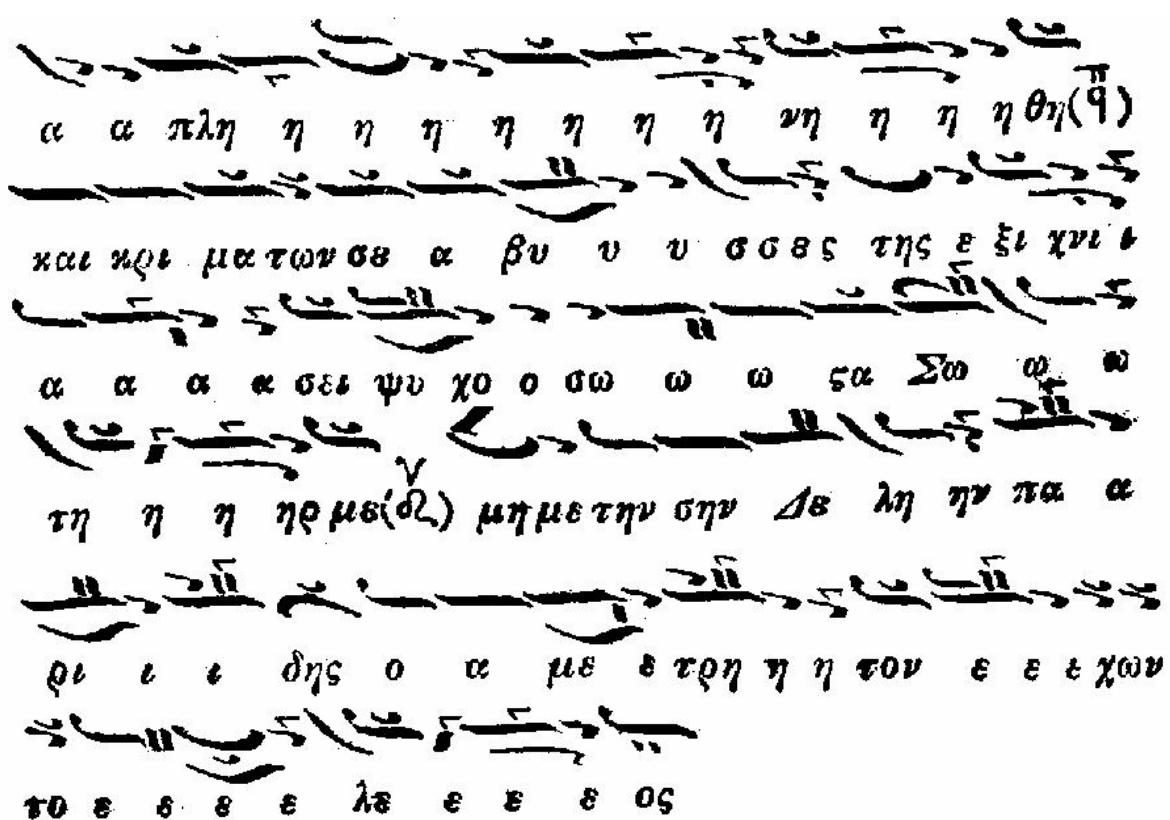 α α πλη η η η η η η η νη η η η θη(π̈q)
και κρι μα των σȣ α βυ υ υ σ σȣς της ε ξι χνι ι
α α α α σει ψυ χο ο σω ω ω ςα Σω ω ω
τη η η ηρ μȣ(ν δι) μη με την σην Δȣ λη ην πα α
ρι ι ι δης ο α με ε τρη η η τον ε ε ε χων
το ε ε ε ε λε ε ε ε ος